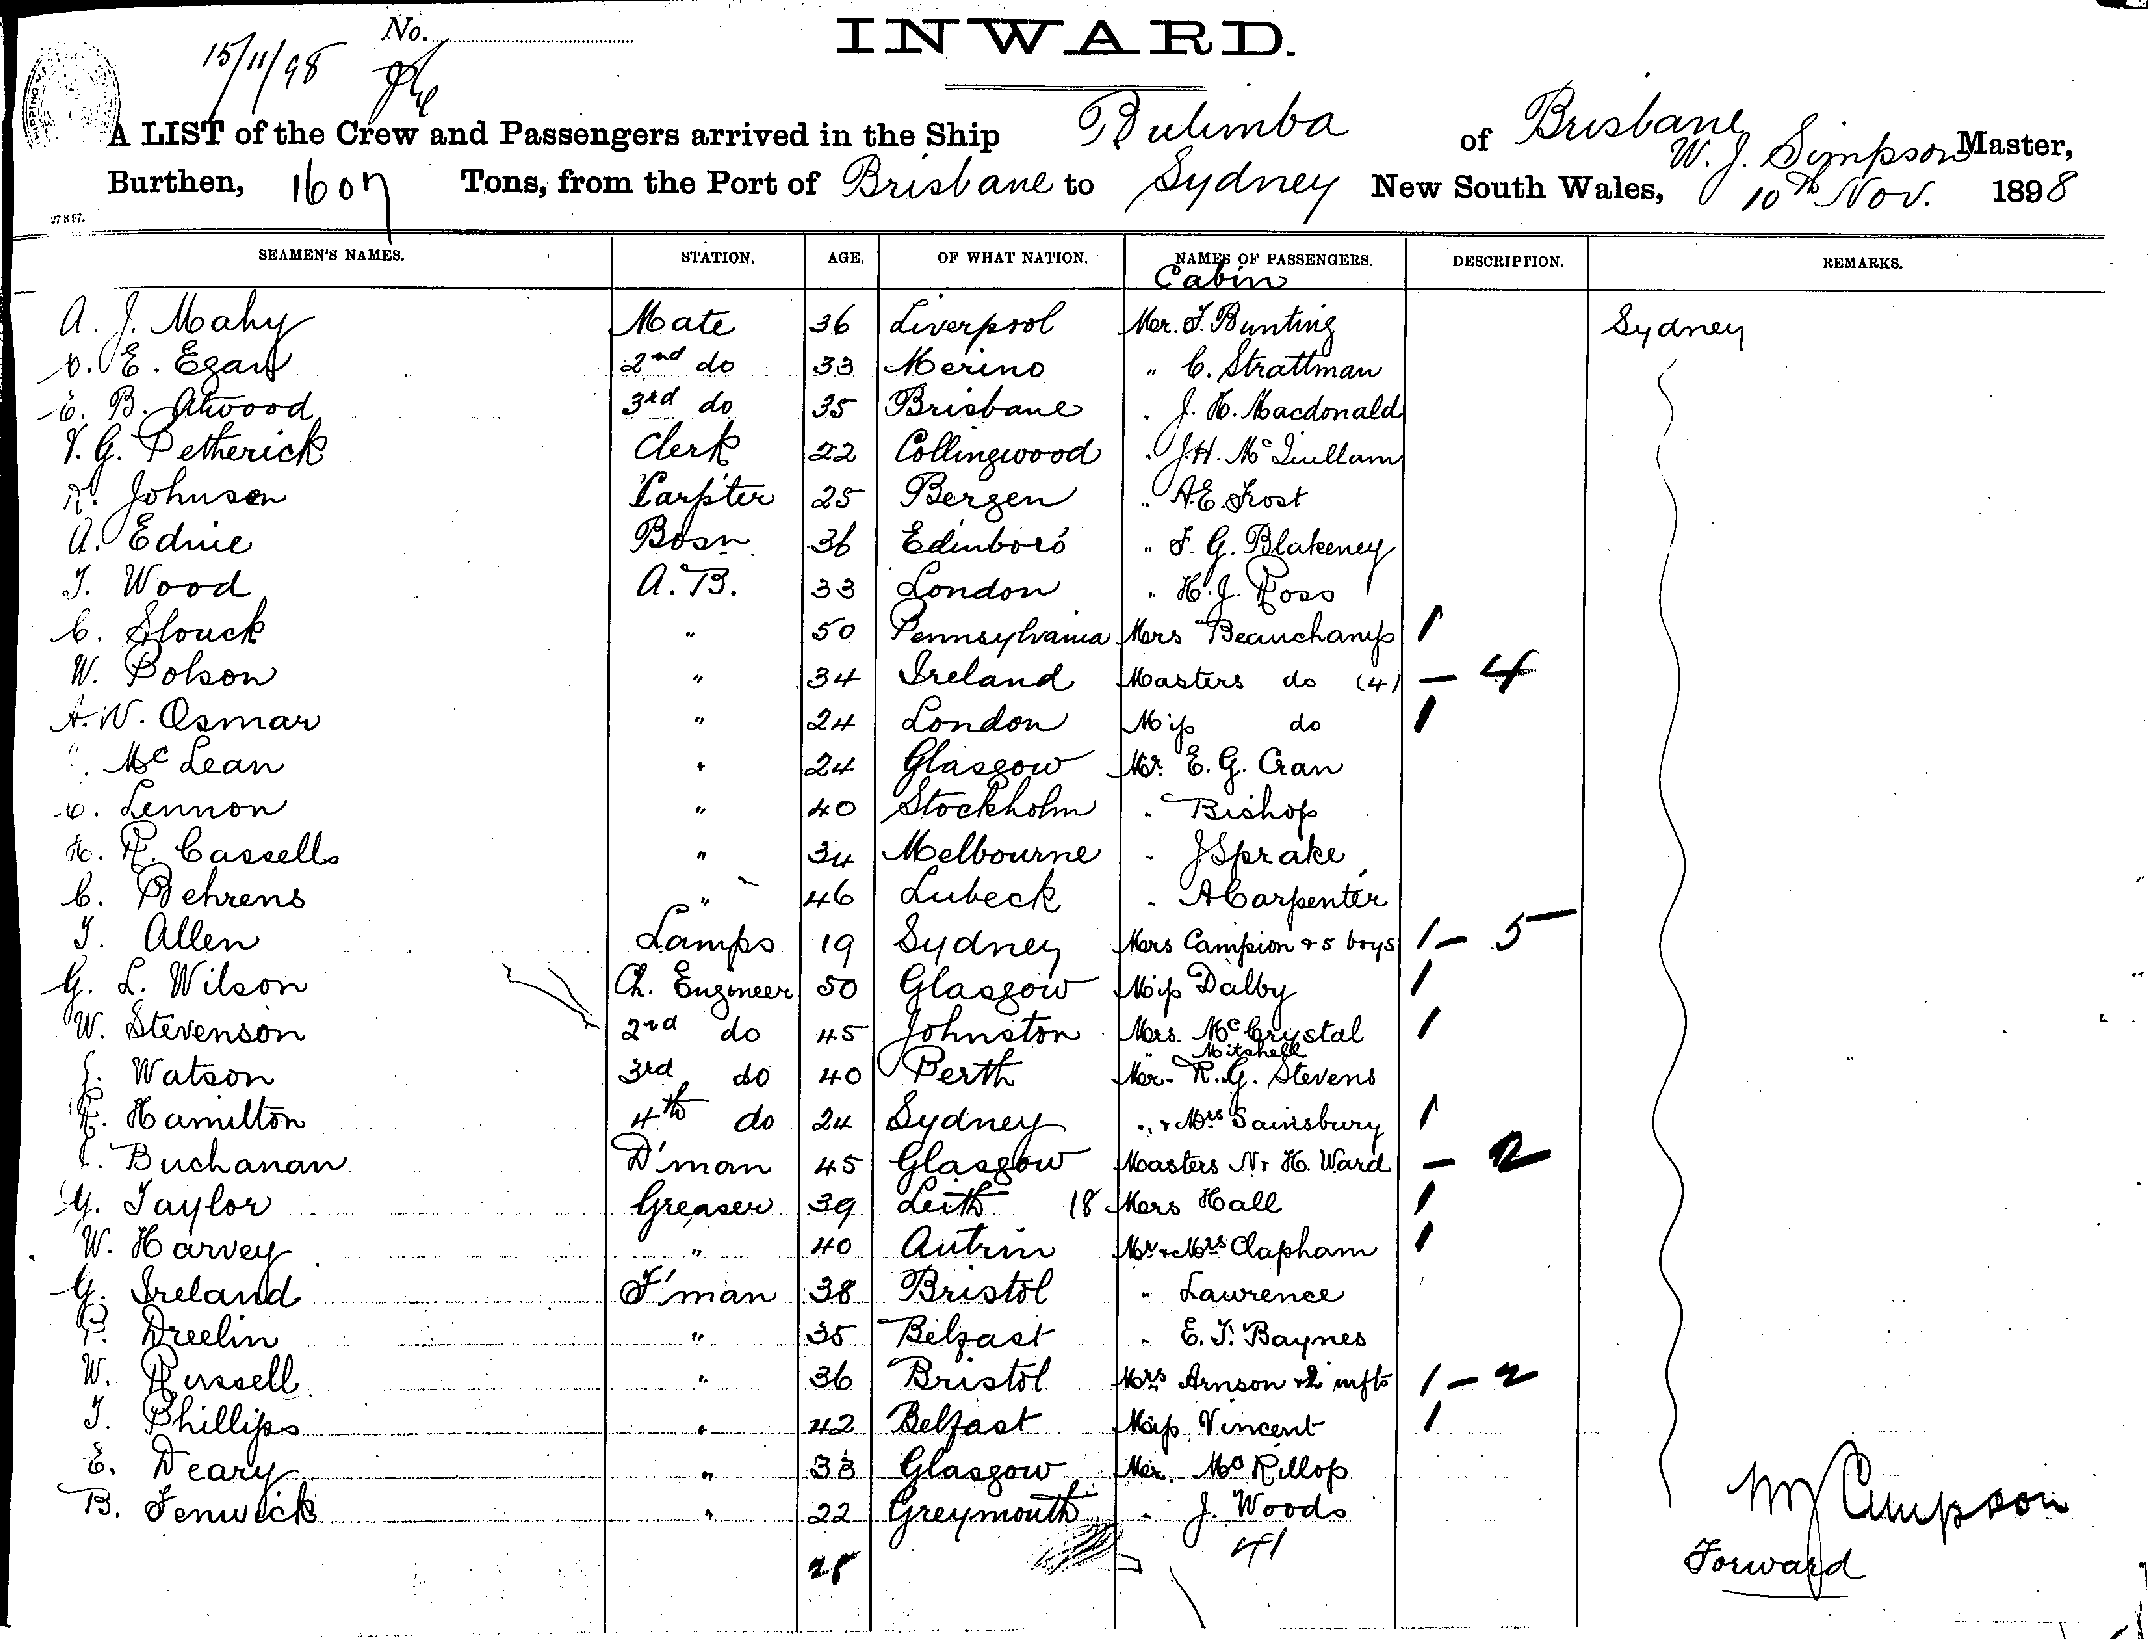 No.
INWARD.
15/11/98
A LIST of the Crew and Passengers arrived in the Ship Bulimba of Brisbane W. J. Simpson Master,
Burthen, 1607 Tons, from the Port of Brisbane to Sydney New South Wales, 10th Nov. 1898
SEAMEN'S NAMES. STATION. AGE. OF WHAT NATION. NAMES OF PASSENGERS. DESCRIPTION. REMARKS.
Cabin
A. J. Mahy Mate 36 Liverpool Mr. F. Bunting Sydney
E. Egan 2nd do 33 Merino " C. Strattman
E. B. Atwood 3rd do 35 Brisbane " J. H. Macdonald
V. G. Petherick Clerk 22 Collingwood " J.H. McQuillam
R. Johnson Carpter 25 Bergen " A.E. Frost
A. Edmie Bosn 36 Edinboro " F. G. Blakeney
T. Wood A.B. 33 London " H. J. Ross
C. Slouck " 50 Pennsylvania Mrs Beauchamp 1
W. Polson " 34 Ireland Masters do (4) — 4
A.W. Osmar " 24 London Miss do 1
McLean " 24 Glasgow Mr. E. G. Cran
C. Lennon " 40 Stockholm " Bishop
H. R. Cassells " 34 Melbourne " J Sprake
C. Behrens " 46 Lubeck " A Carpenter
T. Allen Lamps 19 Sydney Mrs Campion & 5 boys 1 — 5
G. L. Wilson Ch. Engineer 50 Glasgow Miss Dalby 1
W. Stevenson 2nd do 45 Johnston Mrs. McCrystal 1
" Mitchell
J. Watson 3rd do 40 Perth Mr. R. G. Stevens
R. Hamilton 4th do 24 Sydney " & Mrs Sainsbury 1
Buchanan D'man 45 Glasgow Masters N & H. Ward — 2
G. Taylor Greaser 39 Leith 18 Mrs Hall 1
W. Harvey " 40 Antrim Mr & Mrs Clapham 1
G. Ireland F'man 38 Bristol " Lawrence
P. Dreelin " 35 Belfast " E. T. Baynes
W. Russell " 36 Bristol Mrs Arnson & 2 infts 1 — 2
T. Phillips " 42 Belfast Miss Vincent 1
E. Deary " 33 Glasgow Mr. McKillop
B. Fenwick " 22 Greymouth " J. Woods
28 41
W J Simpson
Forward